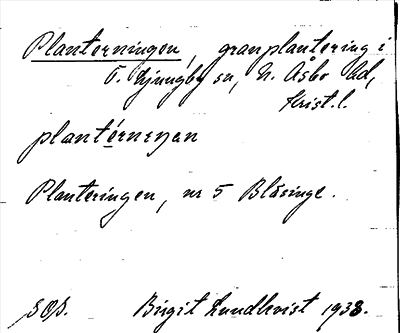 Planterningen, granplantering i
Ö. Ljungby sn, N. Åsbo hd,
Krist. l.
plantérnenan
Planteringen, nr 5 Blåsinge.
SOS.
Birgit Lundkvist 1938.